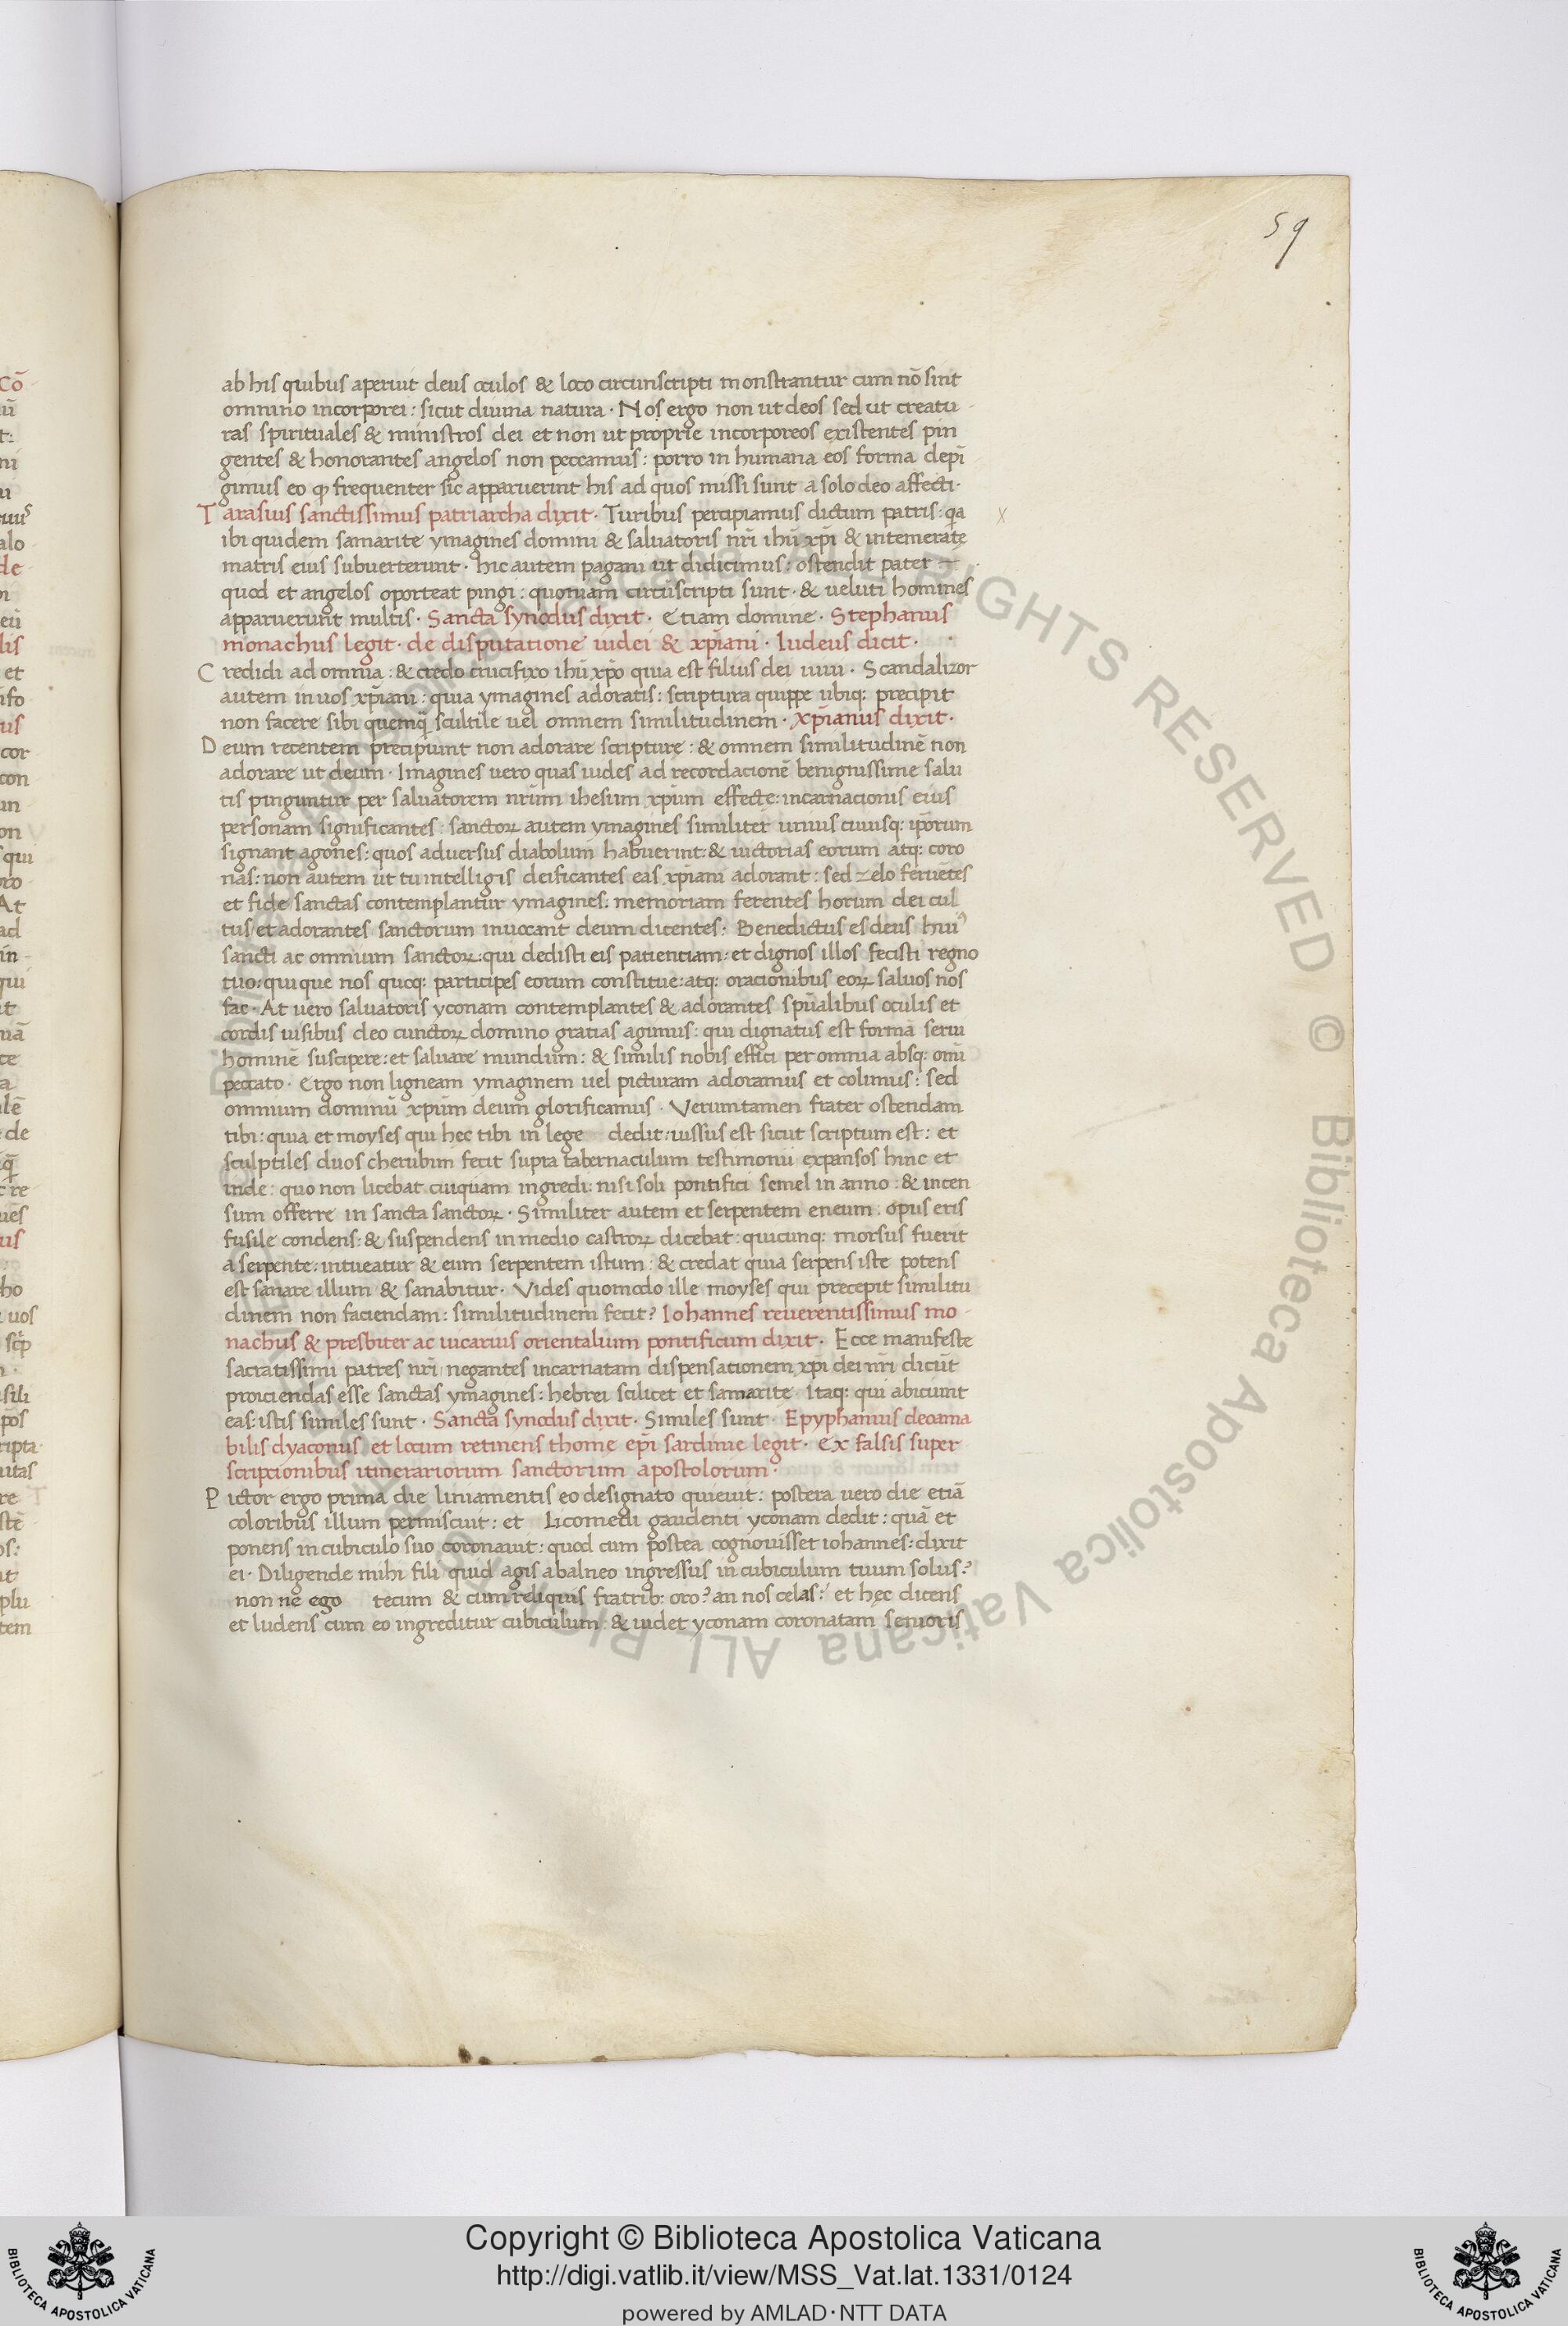 59
ab his quibus aperuit deus oculos & loco circunscripti monstrantur cum nō sint
omnino incorporei : sicut diuina natura · Nos ergo non ut deos sed ut creatu-
ras spirituales & ministros dei et non ut proprie incorporeos existentes pin
gentes & honorantes angelos non peccamus : porro in humana eos forma depī
gimus eo ꝙ frequenter sic apparuerint his ad quos missi sunt a solo deo affecti ·
Tarasius sanctissimus patriarcha dixit · Turibus percipiamus dictum patris : qa
ibi quidem samarite ymagines domini & saluatoris nr̄i ihū xp̄i & intemeratę
matris eius subuerterunt · hic autem pagani ut didicimus : ostendit patet
quod et angelos oporteat pingi : quoniam circūscripti sunt · & ueluti homines
apparuerunt multis · Sancta synodus dixit · Etiam domine · Stephanus
monachus legit · de disputatione iudei & xp̄iani · Iudeus dicit ·
Credidi ad omnia : & credo crucifixo ihū xp̄o quia est filius dei uiui · Scandalizor
autem in uos xp̄iani : quia ymagines adoratis : scriptura quippe ubiq; precipit
non facere sibi quemq̄ sculptile uel omnem similitudinem · xp̄ianus dixit ·
Deum recentem precipiunt non adorare scripture : & omnem similitudinē non
adorare ut deum · Imagines uero quas uides ad recordacionē benignissime salu
tis pinguntur per saluatorem nr̄um ihesum xp̄um effecte : incarnacionis eius
personam significantes : sanctoꝝ autem ymagines similiter unius cuiusq; ip̄orum
signant agones : quos aduersus diabolum habuerint : & uictorias eorum atq; coro
nas : non autem ut tu intelligis deificantes eas xp̄iani adorant : sed zelo feruētes
et fide sanctas contemplantur ymagines : memoriam ferentes horum dei cul
tus et adorantes sanctorum inuocant deum dicentes · Benedictus es deus hui⁹
sancti ac omnium sanctoꝝ : qui dedisti eis patientiam : et dignos illos fecisti regno
tuo : quique nos quoq; participes eorum constitue : atq; oracionibus eoꝝ saluos nos
fac · At uero saluatoris yconam contemplantes & adorantes spūalibus oculis et
cordis uisibus deo cunctoꝝ domino gratias agimus : qui dignatus est formā serui
hominē suscipere : et saluare mundum : & similis nobis effici per omnia absq; omī
peccato · Ergo non ligneam ymaginem uel picturam adoramus et colimus : sed
omnium dominū xp̄um deum glorificamus · Verumtamen frater ostendam
tibi : quia et moyses qui hec tibi in lege dedit : iussus est sicut scriptum est : et
sculptiles duos cherubim fecit supra tabernaculum testimonii expansos hinc et
inde : quo non licebat cuiquam ingredi : nisi soli pontifici semel in anno : & incen
sum offerre in sancta sanctoꝝ · Similiter autem et serpentem eneum : opus eris
fusile condens : & suspendens in medio castroꝝ dicebat : quicunq; morsus fuerit
a serpente : intueatur & eum serpentem istum : & credat quia serpens iste potens
est sanare illum & sanabitur · Vides quomodo ille moyses qui precepit similitu
dinem non faciendam : similitudinem fecit ? Iohannes reuerentissimus mo-
nachus & presbiter ac uicarius orientalium pontificum dixit · Ecce manifeste
sacratissimi patres nr̄i negantes incarnatam dispensationem xp̄i dei nr̄i dicūt
proiciendas esse sanctas ymagines : hebrei scilicet et samarite Itaq; qui abiciunt
eas : istis similes sunt · Sancta synodus dixit · Similes sunt · Epyphanius deoama
bilis dyaconus et locum retinens thome ep̄i sardinie legit · Ex falsis super
scriptionibus itinerariorum sanctorum apostolorum ·
Pictor ergo prima die liniamentis eo designato quieuit : postera uero die etiā
coloribus illum permiscuit : et Licomedi gaudenti yconam dedit : quā et
ponens in cubiculo suo coronauit : quod cum postea cognouisset iohannes : dixit
ei · Diligende mihi fili quid agis a balneo ingressus in cubiculum tuum solus ?
non ne ego tecum & cum reliquis fratrib; oro ? an nos celas ? et hęc dicens
et ludens cum eo ingreditur cubiculum : & uidet yconam coronatam senioris
© Biblioteca Apostolica Vaticana ALL RIGHTS RESERVED
Copyright © Biblioteca Apostolica Vaticana
http://digi.vatlib.it/view/MSS_Vat.lat.1331/0124
powered by AMLAD·NTT DATA
BIBLIOTECA APOSTOLICA VATICANA
BIBLIOTECA APOSTOLICA VATICANA